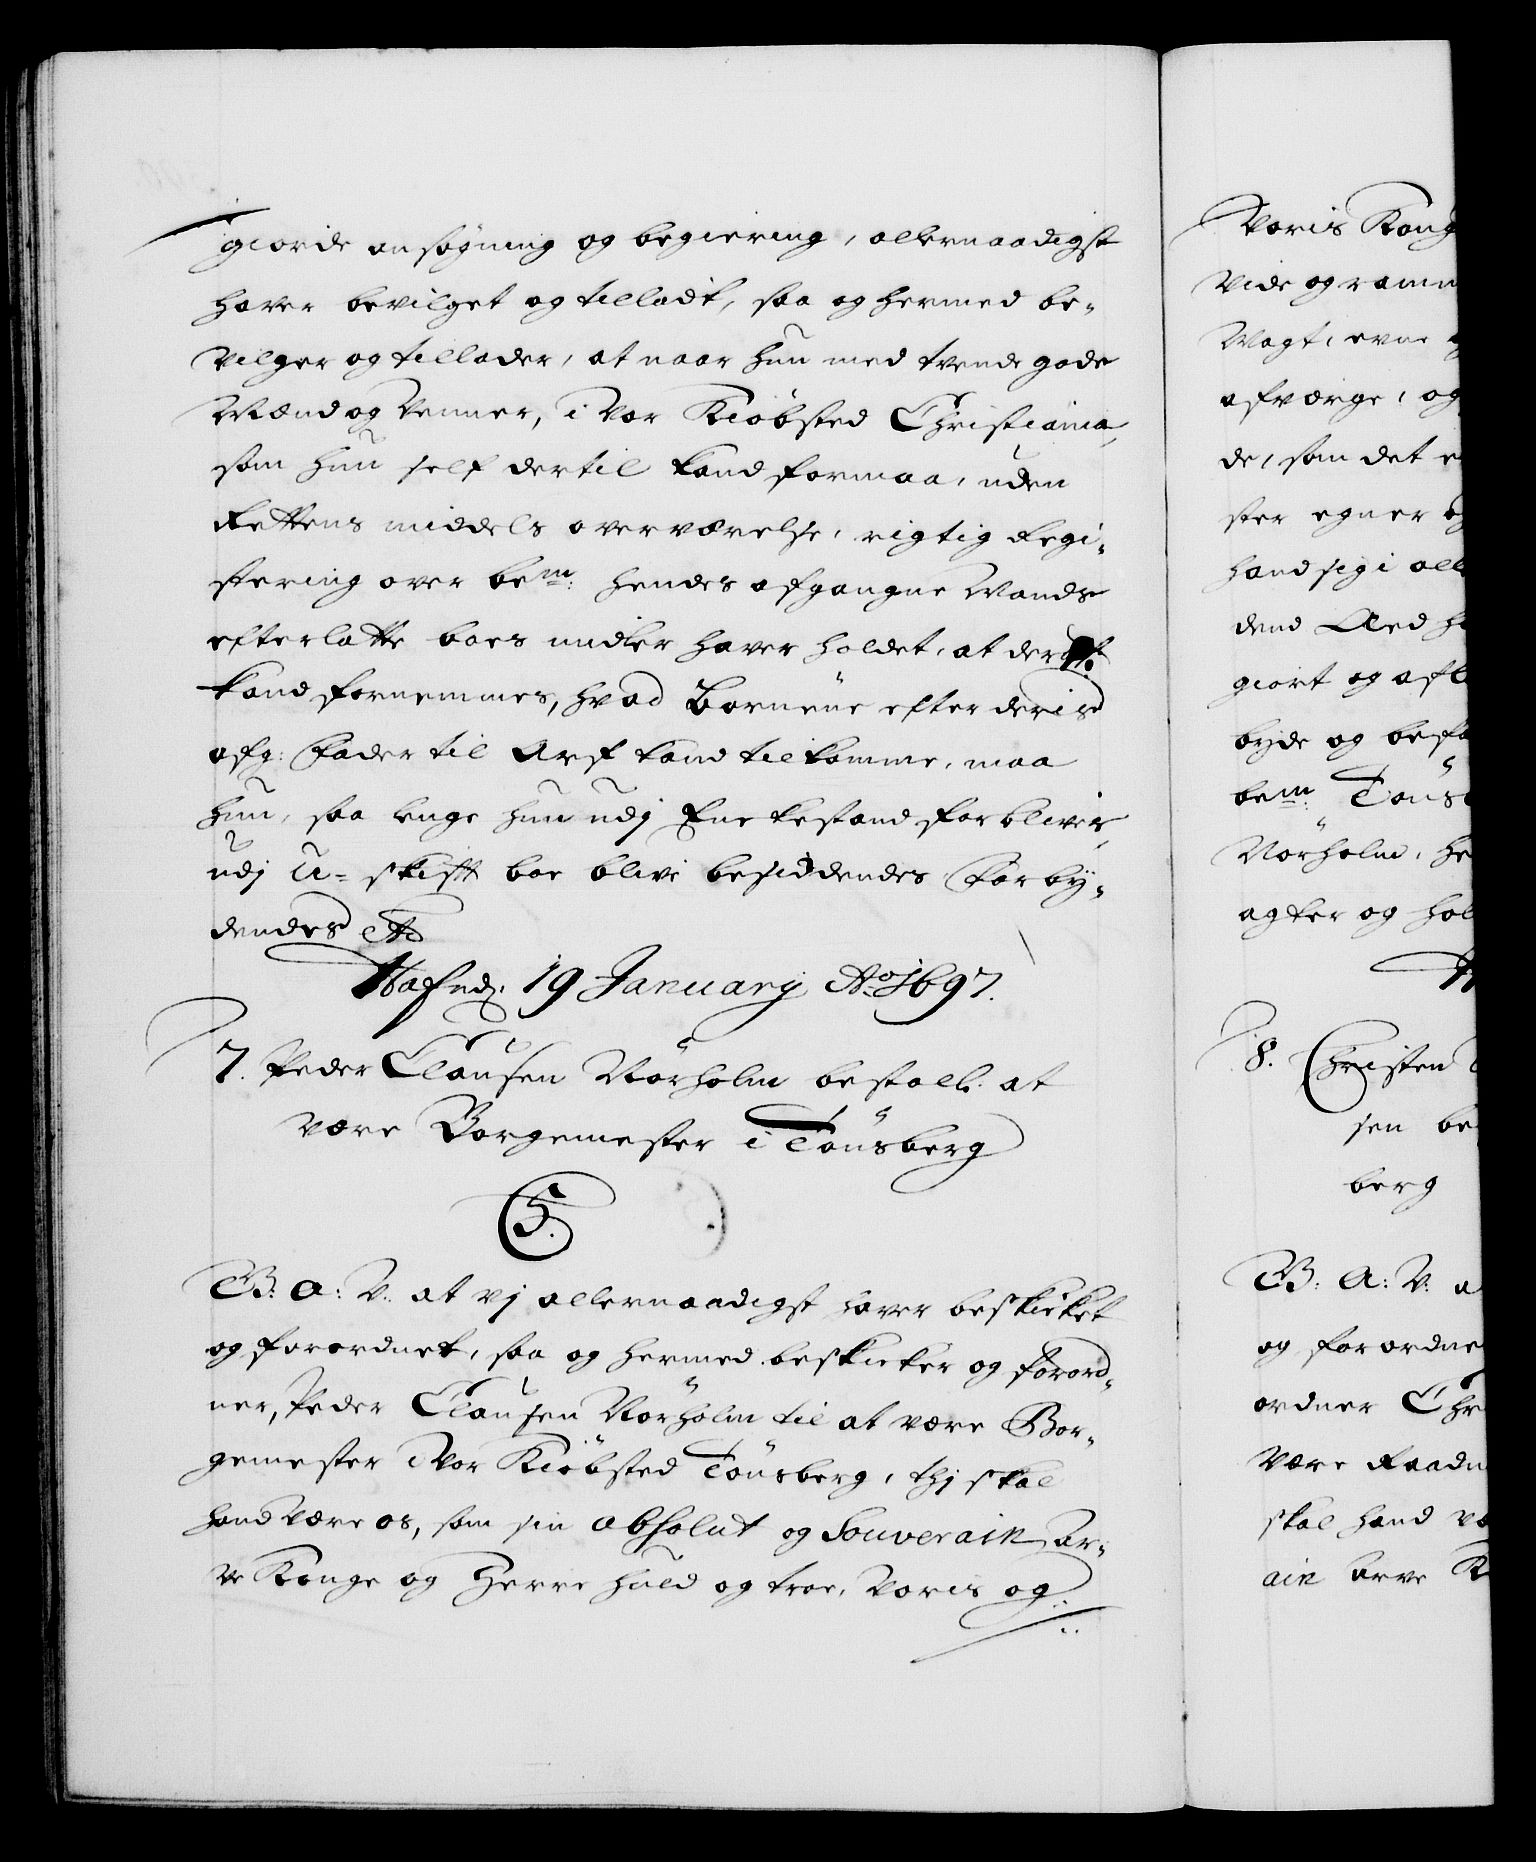 giorde ansøgning og begiering, allernaadigst
haver bevilget og tilladt, saa og hermed be-
vilger og tillader, at naar hun med tvende gode
Mænd og Venner, i Vor Kiöbsted Christiania,
som hun self dertil kand formaa, uden
Rettens middels overværelse, rigtig Regi-
stering over bem: hendes afgangne Mands
efterlatte boes midler haver holdet, at deraf
kand fornemmes, hvad Börnene efter deris
afg: Fader til Arf kand tilkomme, maa
hun, saa lenge hun udj Enckestand forbliver,
udj U-skift boe blive besiddendes Forby-
dendes etc
Hafnæ. 19 January Ao 1697.
7. Peder Clausen Nörholm bestall. at
være Borgemester i Tönsberg
C5.
G: A: V: at vj allernaadigst haver beskicket
og forordnet, saa og hermed beskicker og forord-
ner, Peder Clausen Nörholm til at være Bor-
gemester i Vor Kiöbsted Tönsberg, thj skal
hand være os, som sin absolut og Souverain Ar-
ve Konge og Herre huld og troe, Voris og
Voris Kong
vide og ramm
Magt, evne
afværge, og
de, som det
ster egner og
hand sig i all
dend Aed
giort og afl
byde og befa
bem: Töns
Nörholm, he
agter og hol
8. Christen
sen be
berg
G: A: V: a
og forordne
ordner Chr
være Raadm
skal hand væ
ain Arve K